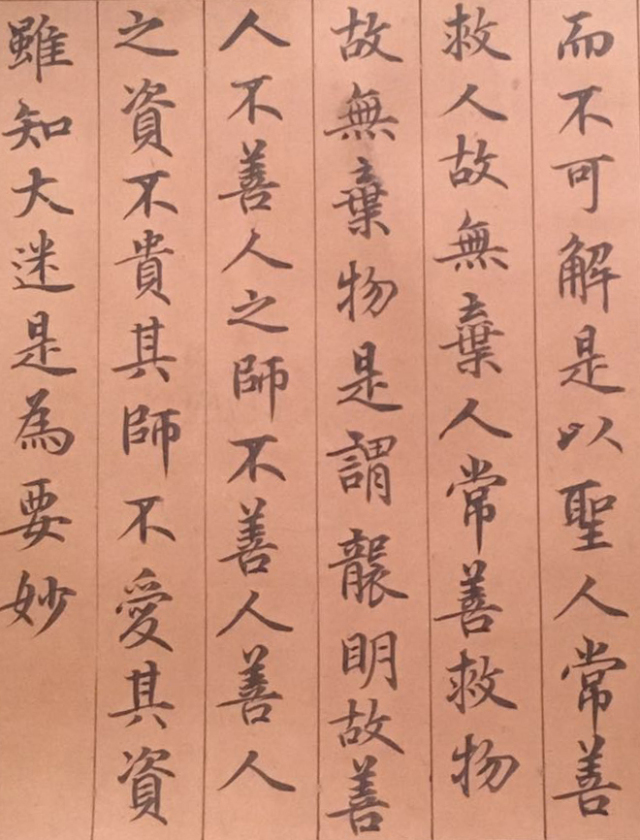 而不可解是以聖人常善
救人故無棄人常善救物
故無棄物是謂襲明故善
人不善人之師不善人善人
之資不貴其師不愛其資
雖知大迷是為要妙